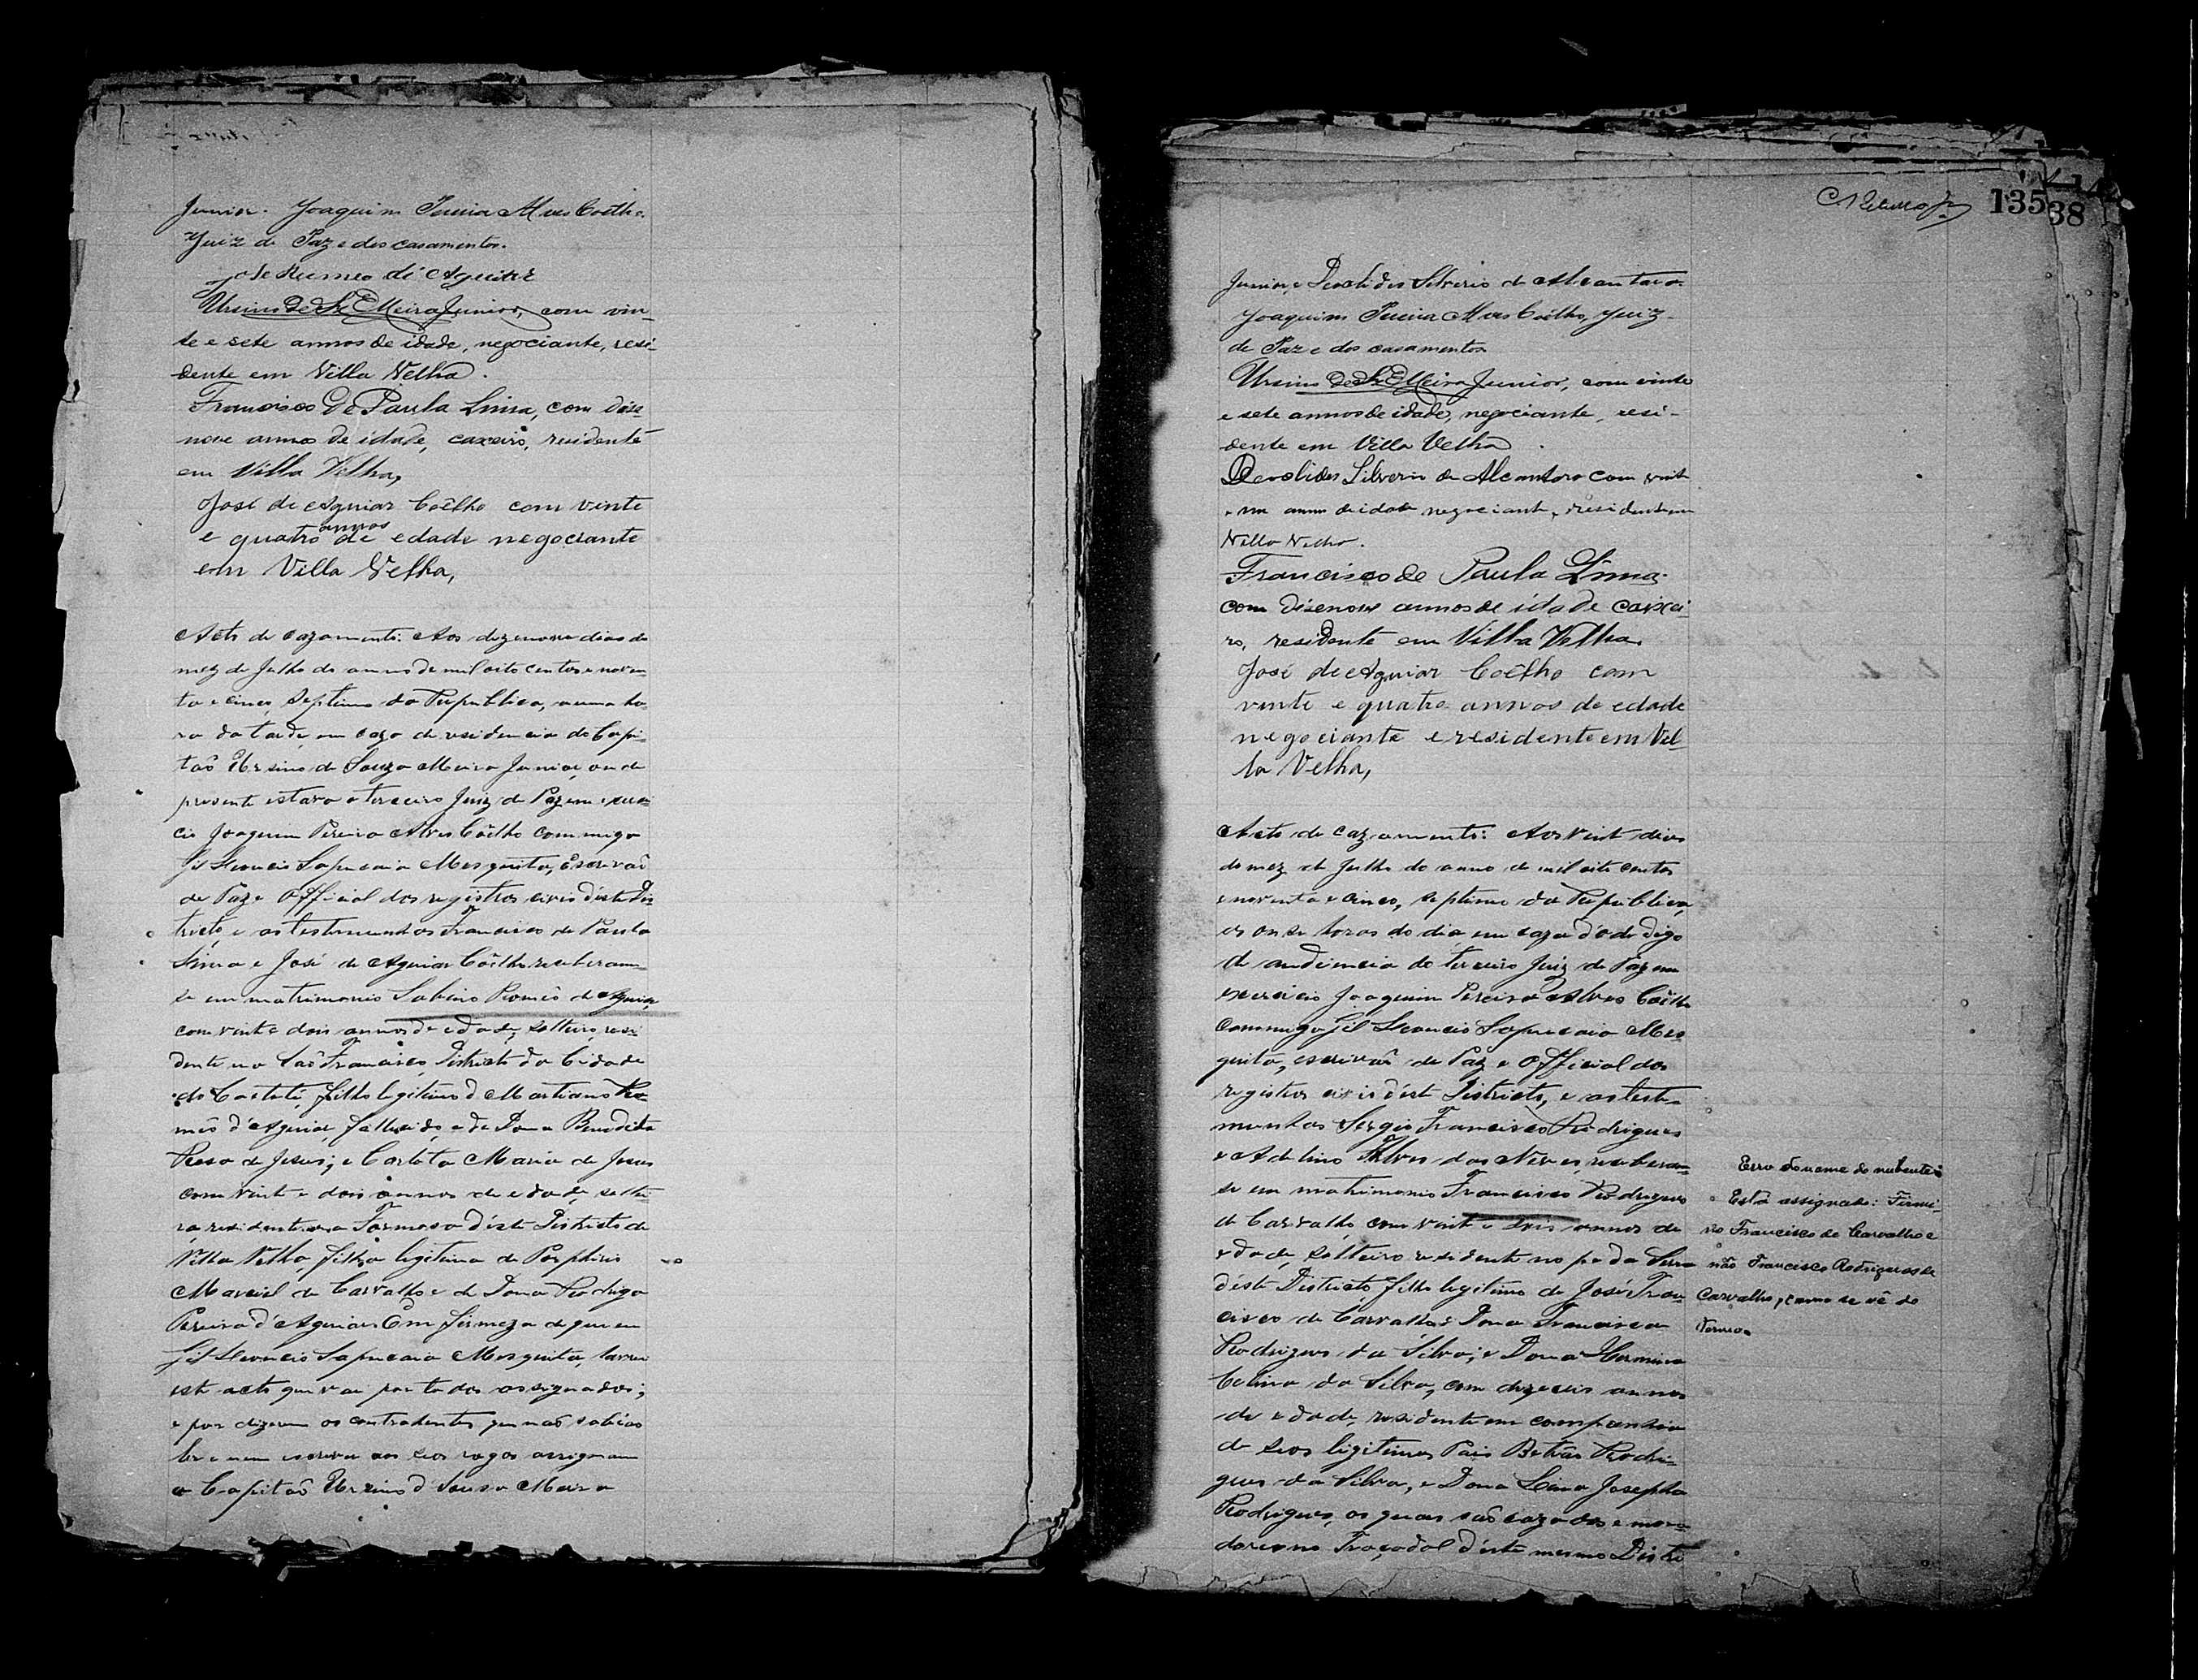 Junior. Joaquim Pereira Alves Coêlho.
Juiz de Paz e dos casamentos.
José Rumeo de Aguiar
Ursino de Sz. Meira Junior, com vin-
te e sete annos de idade, negociante, resi-
dente em Villa Velha.
Francisco de Paula Lima, com dise-
nove annos de idade, caxeiro, residente
em Villa Velha,
José de Aguiar Coêlho com vinte
e quatro annos de edade negociante
em Villa Velha,
Acto de cazamento: Aos dezenove dias do
mez de Julho do anno de mil oito centos e noven-
ta e cinco, septimo da Republica, a uma ho-
ra da tarde, em caza de residencia do Capi-
taõ Ursino de Souza Meira Junior, onde
presente estava o terceiro Juiz de Paz em exerci-
cio Joaquim Pereira Alves Coêlho commigo
Gil Leoncio Sapucaia Mesquita, Escrivaõ
de Paz e Official dos registros civis d'este Dis-
tricto e as testemunhas Francisco de Paula
Lima e José de Aguiar Coêlho receberam-
se em matrimonio Sabino Romêo de Aguiar
com vinte dois annos de edade, solteiro, resi-
dente no Saõ Francisco, Districto da Cidade
do Caeteté, filho legitimo de Martiano Ro-
mêo d'Aguiar, fallecido, e de Dona Benedicta
Rosa de Jesus; e Carlota Maria de Jesus
com vinte e dois annos de edade, soltei-
ra, residente na Formosa d'este Districto de
Villa Velha, filha legitima de Porphirio
Marcial de Carvalho e de Dona Rodriga
Pereira d'Aguiar. Em firmeza do que eu
Gil Leoncio Sapucaia Mesquita, lavrei
este acto que vai por todos assignados;
e por dizerem os contrahentes que naõ sabiaõ
ler e nem escrever aos seos rogos assignaram
o Capitaõ Ursino d' Sousa Meira
135 38
Junior, e Deoclides Silverio de Alcantara.
Joaquim Pereira Alves Coêlho, Juiz
de Paz e dos casamentos
Ursino de Sz. Meira Junior, com vinte
e sete annos de idade, negociante, resi-
dente em Villa Velha.
Deoclides Silverio de Alcantara com vinte
e um annos de idade negociante, residente em
Villa Velha.
Francisco de Paula Lima.
com disenove annos de idade caixei-
ro, residente em Villa Velha.
José de Aguiar Coêlho com
vinte e quatro annos de edade
negociante e residente em Vil-
la Velha,
Acto de cazamento: Aos vinte dias
do mez de Julho do anno de mil oito centos
e noventa e cinco, septimo da Republica,
as onze horas do dia em caza da de digo
de audiencia do terceiro Juiz de Paz em
exercicio Joaquim Pereira Alves Coêlho
commigo Gil Leoncio Sapucaia Mes-
quita, escrivaõ de Paz e Official dos
registros civis d'este Districto, e as teste-
munhas Sergio Francisco Rodrigues
e Adelino Alves das Neves, receberam-
se em matrimonio Francisco Rodrigues
de Carvalho, com vinte e dois annos de
edade, solteiro residente no pé da Serra
d'este Districto filho legitimo de José Fran-
cisco de Carvalho e Dona Francisca
Rodrigues da Silva; e Dona Hermina
Celina da Silva, com dezeseis annos
de edade, residente em companhia
de seos legitimos Pais Rodri-
gues da Silva, e Dona Lina Josepha
Rodrigues, os quaes saõ cazados e mora-
dores no d'este mesmo Distri
Erro do nome do nubente:
Está assignado: Firmi-
no Francisco de Carvalho e
não Francisco Rodrigues de
Carvalho, como se vê do
termo.